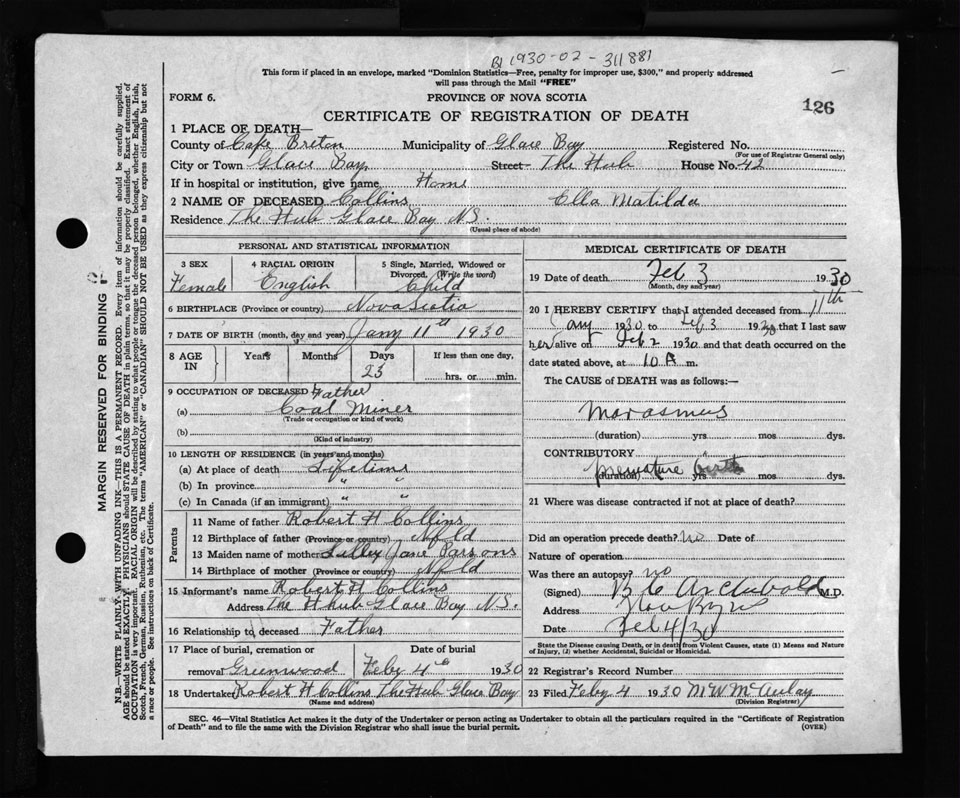 B1 1930-02-311881
This form if placed in an envelope, marked "Dominion Statistics—Free, penalty for improper use, $300," and properly addressed
will pass through the Mail "FREE"
FORM 6.
PROVINCE OF NOVA SCOTIA
126
CERTIFICATE OF REGISTRATION OF DEATH
1 PLACE OF DEATH—
County of Cape Breton Municipality of Glace Bay Registered No.
(For use of Registrar General only)
City or Town Glace Bay Street The Hub House No. 42
If in hospital or institution, give name Home
2 NAME OF DECEASED Collins Ella Matilda
Residence The Hub Glace Bay N.S.
(Usual place of abode)
PERSONAL AND STATISTICAL INFORMATION
3 SEX 4 RACIAL ORIGIN 5 Single, Married, Widowed or Divorced. (Write the word)
Female English Child
6 BIRTHPLACE (Province or country) Nova Scotia
7 DATE OF BIRTH (month, day and year) Jany 11th 1930
8 AGE IN Years Months Days If less than one day,
23 hrs. or min.
9 OCCUPATION OF DECEASED Father
(a) Coal Miner
(Trade or occupation or kind of work)
(b)
(Kind of industry)
10 LENGTH OF RESIDENCE (in years and months)
(a) At place of death Lifetime
(b) In province " "
(c) In Canada (if an immigrant) " "
Parents
11 Name of father Robert H Collins
12 Birthplace of father (Province or country) Nfld
13 Maiden name of mother Lilley Jane Parsons
14 Birthplace of mother (Province or country) Nfld
15 Informant's name Robert H Collins
Address The Hub Glace Bay N.S.
16 Relationship to deceased Father
17 Place of burial, cremation or Date of burial
removal Greenwood Feby 4th 1930
18 Undertaker Robert H Collins The Hub Glace Bay
(Name and address)
MEDICAL CERTIFICATE OF DEATH
19 Date of death Feb 3 1930
(Month, day and year)
20 I HEREBY CERTIFY that I attended deceased from 11th
Jany 1930 to Feb 3 1930 that I last saw
her alive on Feb 2 1930 and that death occurred on the
date stated above, at 10 A m.
The CAUSE of DEATH was as follows:—
Marasmus
(duration) yrs mos dys.
CONTRIBUTORY
premature birth
(duration) yrs mos dys.
21 Where was disease contracted if not at place of death?
Did an operation precede death? No Date of
Nature of operation
Was there an autopsy? no
(Signed) Archibald M.D.
Address
Date Feb 4/30
State the Disease causing Death, or in death from Violent Causes, state (1) Means and Nature of Injury, (2) whether Accidental, Suicidal or Homicidal.
22 Registrar's Record Number
23 Filed Feby 4 1930 M W McAulay
(Division Registrar)
SEC. 46—Vital Statistics Act makes it the duty of the Undertaker or person acting as Undertaker to obtain all the particulars required in the "Certificate of Registration
of Death" and to file the same with the Division Registrar who shall issue the burial permit. (OVER)
MARGIN RESERVED FOR BINDING
N.B.—WRITE PLAINLY, WITH UNFADING INK—THIS IS A PERMANENT RECORD. Every item of information should be carefully supplied.
AGE should be stated EXACTLY. PHYSICIANS should STATE CAUSE OF DEATH in plain terms, so that it may be properly classified. Exact statement of
OCCUPATION is very important. RACIAL ORIGIN will be described by stating to what people or tongue the deceased person belonged, whether English, Irish,
Scotch, French, German, Russian, Ruthenian, etc. The terms "AMERICAN" or "CANADIAN" SHOULD NOT BE USED as they express citizenship but not
a race or people. See instructions on back of Certificate.